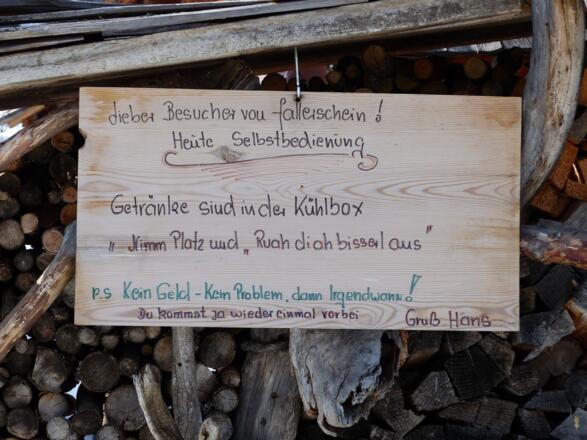 Lieber Besucher von fallerschein!
Heute Selbstbedienung
Getränke sind in der Kühlbox
„Nimm Platz und „Ruah dich bisserl aus"
P.S Kein Geld - Kein Problem, dann Irgendwann!
Du kommst ja wieder einmal vorbei Gruß Hans